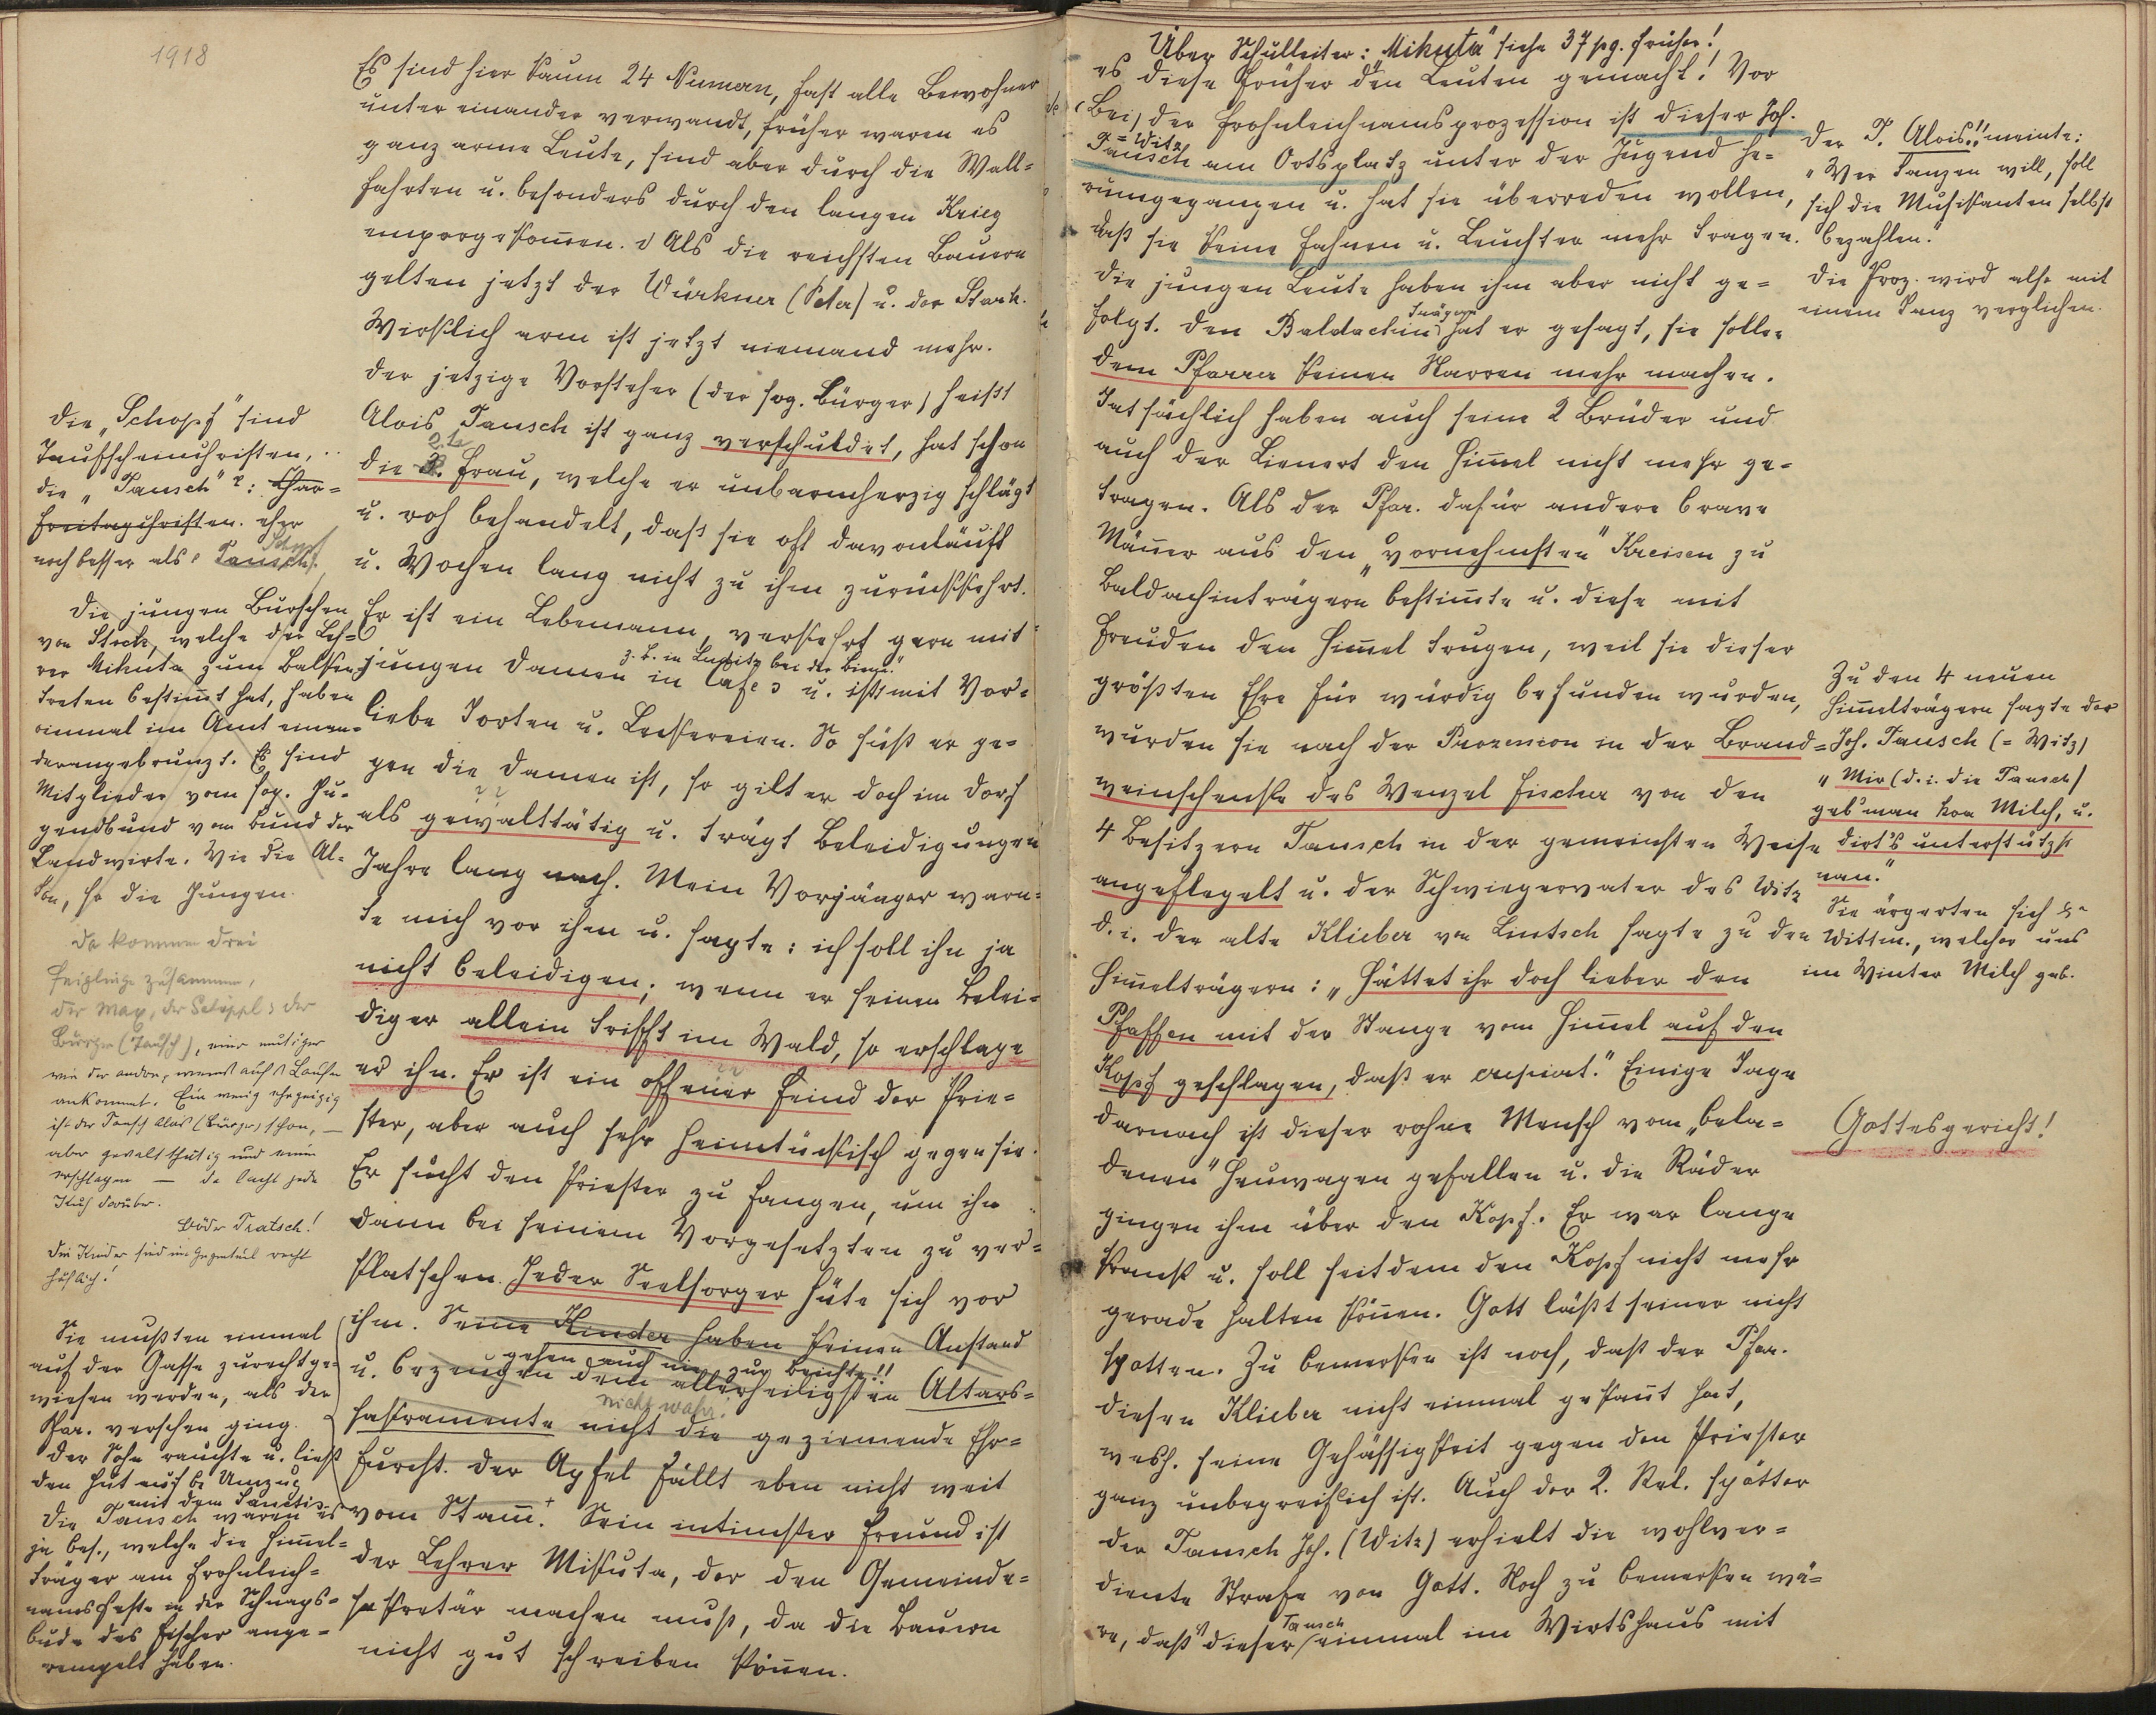 1918
Es sind hier kaum 24 Numern, fast alle Bewohner
unter einander verwandt, früher waren es
ganz arme Leute, sind aber durch die Wall=
fahrten u. besonders durch den langen Krieg
emporgekom̄en. Als die reichsten Bauern
gelten jetzt der Würkner (Peter) u. der Stark.
Wirklich arm ist jetzt niemand mehr.
Der jetzige Vorsteher (der sog. Bürger) heißt
Alois Tausch ist ganz verschuldet, hat schon
2.te
die 3. Frau, welche er unbarmherzig schlägt
u. roh behandelt, daß sie oft davonläuft
u. Wochen lang nicht zu ihm zurückkehrt.
Er ist ein Lebemann, verkehrt gern mit
z. b. in bei der
jungen Damen in Cafes u. ißt mit Vor=
liebe Torten u. Leckereien. So süß er ge=
gen die Damen ist, so gilt er doch im Dorf
als gewalttätig u. trägt Beleidigungen
Jahre lang nach. Mein Vorgänger warn=
te mich vor ihm u. sagte: ich soll ihn ja
nicht beleidigen; wenn er seinen Belei=
diger allein trifft im Wald, so erschlage
er ihn. Er ist ein offener Feind der Prie=
ster, aber auch sehr heimtückisch gegen sie.
Er sucht den Priester zu fangen, um ihn
dann bei seinem Vorgesetzten zu ver=
klatschen. Jeder Seelsorger hüte sich vor
ihm. Seine Kinder haben keinen Anstand
gehen auch nie zur Beichte!!
u. bezeugen dem allerheiligsten Altars=
nicht wahr!
sakramente nicht die geziemende Ehr=
furcht. Der Apfel fällt eben nicht weit
vom Stam̄. Sein intimster Freund ist
der Lehrer Mikuta, der den Gemeinde=
sekretär machen muß, da die Bauern
nicht gut schreiben kön̄en.
Die "Schopf" sind
Taufscheinchristen,
die "Tausch": Char=
freitagchristen. eher
Schopf
noch besser als Tausch.
Die jungen Burschen
von Stock, welche der Leh=
rer Mikuta zum Balken
treten bestim̄t hat, haben
einmal im Amt einan=
der angebrunzt. Es sind
Mitglieder vom sog. Ju=
gendbund vom Bund der
Landwirte. Wie die Al=
ten, so die Jungen.
Da kommen drei
Feiglinge zusammen,
der May, der Schöppl & der
Bürger (Tausch), einer mutiger
wie der andre, wenns auf's Laufen
ankommt. Ein wenig ehrgeizig
ist der Tausch Alois (Bürger) schon, —
aber gewaltthätig und einen
erschlagen — da lacht jede
Kuh darüber.
Blöder Tratsch!
Die Kinder sind im Gegenteil recht
höflich!
Sie mußten einmal
auf der Gasse zurechtge=
wiesen werden, als der
Pfar. versehen ging.
Der Sohn rauchte u. ließ
den Hut auf b. Umzug
mit dem Sanctis.
Die Tausch waren es
ja bes., welche die Him̄el=
träger am Frohnleich=
namsfeste in der Schnaps=
bude des Fischer ange=
rempelt haben.
Über Schulleiter: "Mikuta" siehe 37 pg. früher!
es diese früher den Leuten gemacht! Vor
Bei, der Frohnleichnamsprozession ist dieser Joh.
= Witz
Tausch am Ortsplatz unter der Jugend he=
rumgegangen u. hat sie überreden wollen,
daß sie keine Fahnen u. Leuchter mehr tragen.
Die jungen Leute haben ihm aber nicht ge=
trägern
folgt. Den Baldachin hat er gesagt, sie sollen
dem Pfarrer keinen Narren mehr machen.
Tatsächlich haben auch seine 2 Brüder und
auch der Lienert den Him̄el nicht mehr ge=
tragen. Als der Pfar. dafür andere brave
Män̄er aus den "vornehmsten" Kreisen zu
Baldachinträgern bestim̄te u. diese mit
Freuden den Him̄el trugen, weil sie dieser
größten Ehre für würdig befunden wurden,
wurden sie nach der Prozession in der Brand=
weinschenke des Wenzel Fischer von den
4 Besitzern Tausch in der gemeinsten Weise
angeflegelt u. der Schwiegervater des Witz
d. i. der alte Klieber von Lintsch sagte zu den
Him̄elträgern: "Hättet ihr doch lieber den
Pfaffen mit der Stange vom Him̄el auf den
Kopf geschlagen, daß er crepiat." Einige Tage
darnach ist dieser rohe Mensch vom "bela=
denen" Heuwagen gefallen u. die Räder
gingen ihm über den Kopf. Er war lange
krank u. soll seitdem den Kopf nicht mehr
gerade halten kön̄en. Gott läßt seiner nicht
spotten. Zu bemerken ist noch, daß der Pfar.
diesen Klieber nicht einmal gekan̄t hat,
wesh. seine Gehässigkeit gegen den Priester
ganz unbegreiflich ist. Auch der 2. Rel. spötter
der Tausch Joh. (Witz) erhielt die wohlver=
diente Strafe von Gott. Noch zu bemerken wä=
Tausch
re, daß dieser einmal im Wirtshaus mit
Der T. Alois!! meinte:
"Wer tanzen will, soll
sich die Musikanten selbst
bezahlen."
Die Proz. wird also mit
einem Tanz verglichen.
Zu den 4 neuen
Him̄elträgern sagte der
Joh. Tausch (= Witz)
"Mir (d. i. die Tausch)
geb'man koa Milch, u.
dirt's unterstützt
nan."
Sie ärgerten sich
Wittm., welcher uns
im Winter Milch gab.
Gottesgericht!